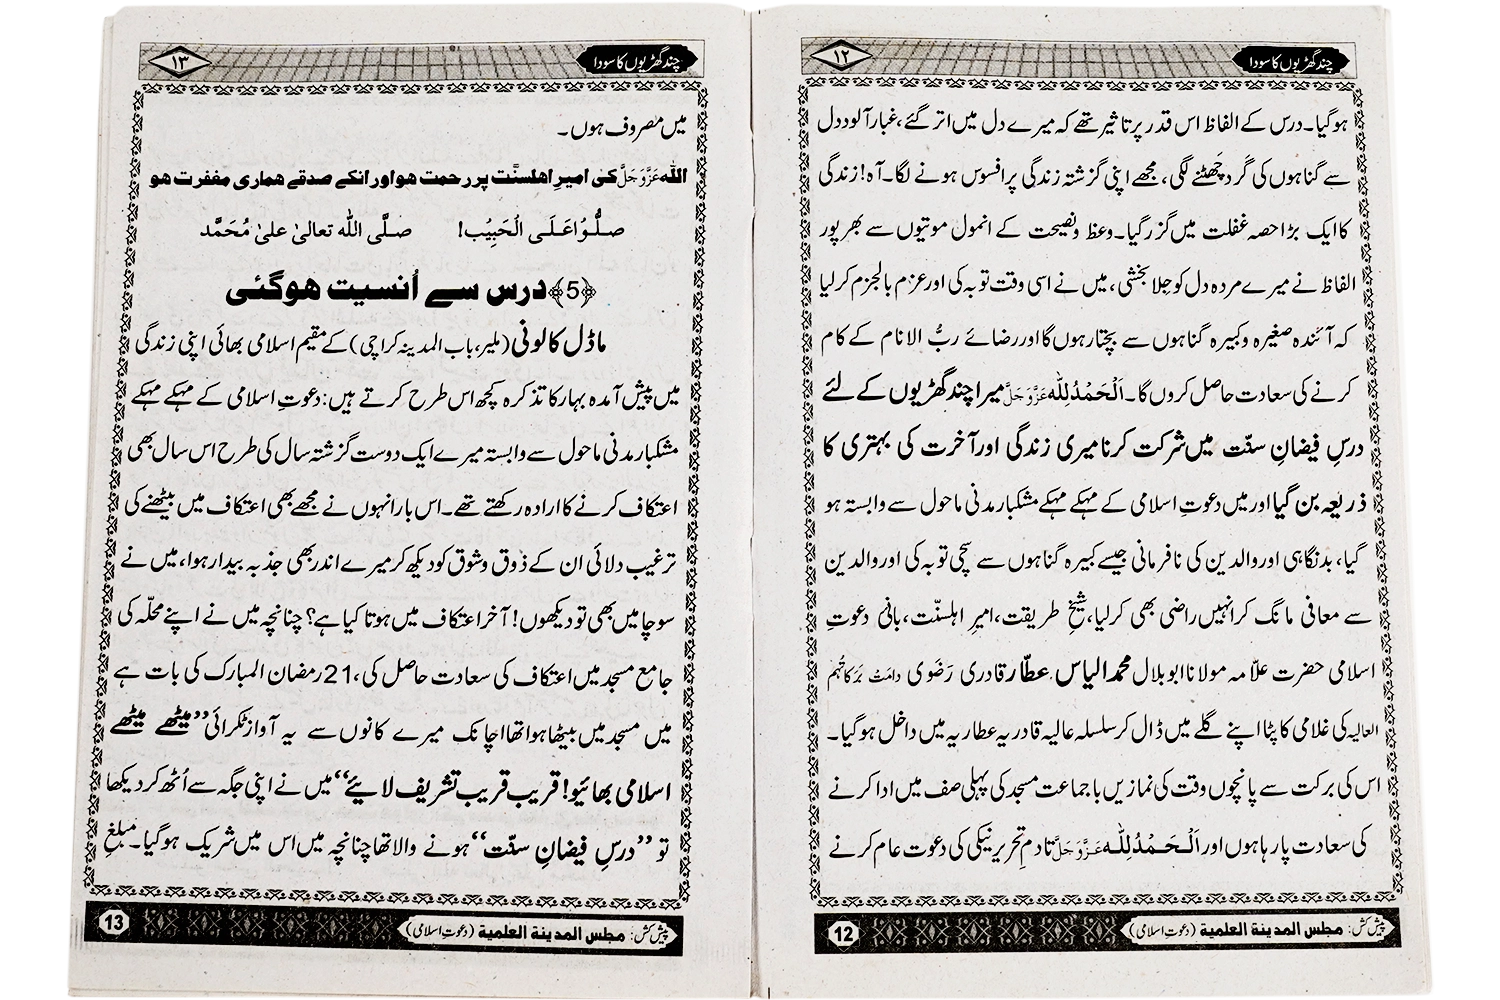 چند گھڑیوں کا سودا
۱۲
ہو گیا۔ درس کے الفاظ اس قدر پر تاثیر تھے کہ میرے دل میں اتر گئے، غبار آلود دل
سے گناہوں کی گرد چَھٹنے لگی، مجھے اپنی گزشتہ زندگی پر افسوس ہونے لگا۔ آہ! زندگی
کا ایک بڑا حصہ غفلت میں گزر گیا۔ وعظ و نصیحت کے انمول موتیوں سے بھر پور
الفاظ نے میرے مردہ دل کو جِلا بخشی، میں نے اسی وقت توبہ کی اور عزم بالجزم کر لیا
کہ آئندہ صغیرہ و کبیرہ گناہوں سے بچتا رہوں گا اور رضائے ربُّ الانام کے کام
کرنے کی سعادت حاصل کروں گا۔ اَلْحَمْدُلِلّٰہ عَزَّوَجَلَّ میرا چند گھڑیوں کے لئے
درسِ فیضانِ سنّت میں شرکت کرنا میری زندگی اور آخرت کی بہتری کا
ذریعہ بن گیا اور میں دعوتِ اسلامی کے مہکے مہکے مشکبار مدنی ماحول سے وابستہ ہو
گیا، بدنگاہی اور والدین کی نافرمانی جیسے کبیرہ گناہوں سے سچی توبہ کی اور والدین
سے معافی مانگ کر انہیں راضی بھی کر لیا، شیخِ طریقت، امیرِ اہلسنّت، بانیٔ دعوتِ
اسلامی حضرت علّامہ مولانا ابو بلال محمد الیاس عطّار قادری رَضَوی دَامَتْ بَرَکَاتُہُم
العالیہ کی غلامی کا پٹا اپنے گلے میں ڈال کر سلسلہ عالیہ قادریہ عطاریہ میں داخل ہو گیا۔
اس کی برکت سے پانچوں وقت کی نمازیں باجماعت مسجد کی پہلی صف میں ادا کرنے
کی سعادت پا رہا ہوں اور اَلْحَمْدُلِلّٰہ عَزَّوَجَلَّ تادمِ تحریر نیکی کی دعوت عام کرنے
پیش کش: مجلس المدینة العلمیة (دعوتِ اسلامی)
12
چند گھڑیوں کا سودا
۱۳
میں مصروف ہوں۔
اللّٰہ عَزَّوَجَلَّ کی امیرِ اھلسنّت پر رحمت ہو اور انکے صدقے ہماری مغفرت ہو
صَلُّوْا عَلَی الْحَبِیْب! صلَّی اللّٰہ تعالیٰ علیٰ مُحَمَّد
﴿5﴾ درس سے اُنسیت ہو گئی
ماڈل کالونی (ملیر، باب المدینہ کراچی) کے مقیم اسلامی بھائی اپنی زندگی
میں پیش آمدہ بہار کا تذکرہ کچھ اس طرح کرتے ہیں: دعوتِ اسلامی کے مہکے مہکے
مشکبار مدنی ماحول سے وابستہ میرے ایک دوست گزشتہ سال کی طرح اس سال بھی
اعتکاف کرنے کا ارادہ رکھتے تھے۔ اس بار انہوں نے مجھے بھی اعتکاف میں بیٹھنے کی
ترغیب دلائی ان کے ذوق و شوق کو دیکھ کر میرے اندر بھی جذبہ بیدار ہوا، میں نے
سوچا میں بھی تو دیکھوں! آخر اعتکاف میں ہوتا کیا ہے؟ چنانچہ میں نے اپنے محلّہ کی
جامع مسجد میں اعتکاف کی سعادت حاصل کی، 21 رمضان المبارک کی بات ہے
میں مسجد میں بیٹھا ہوا تھا اچانک میرے کانوں سے یہ آواز ٹکرائی ”میٹھے میٹھے
اسلامی بھائیو! قریب قریب تشریف لائیے“ میں نے اپنی جگہ سے اُٹھ کر دیکھا
تو ”درسِ فیضانِ سنّت“ ہونے والا تھا چنانچہ میں اس میں شریک ہو گیا۔ مبلغِ
پیش کش: مجلس المدینة العلمیة (دعوتِ اسلامی)
13